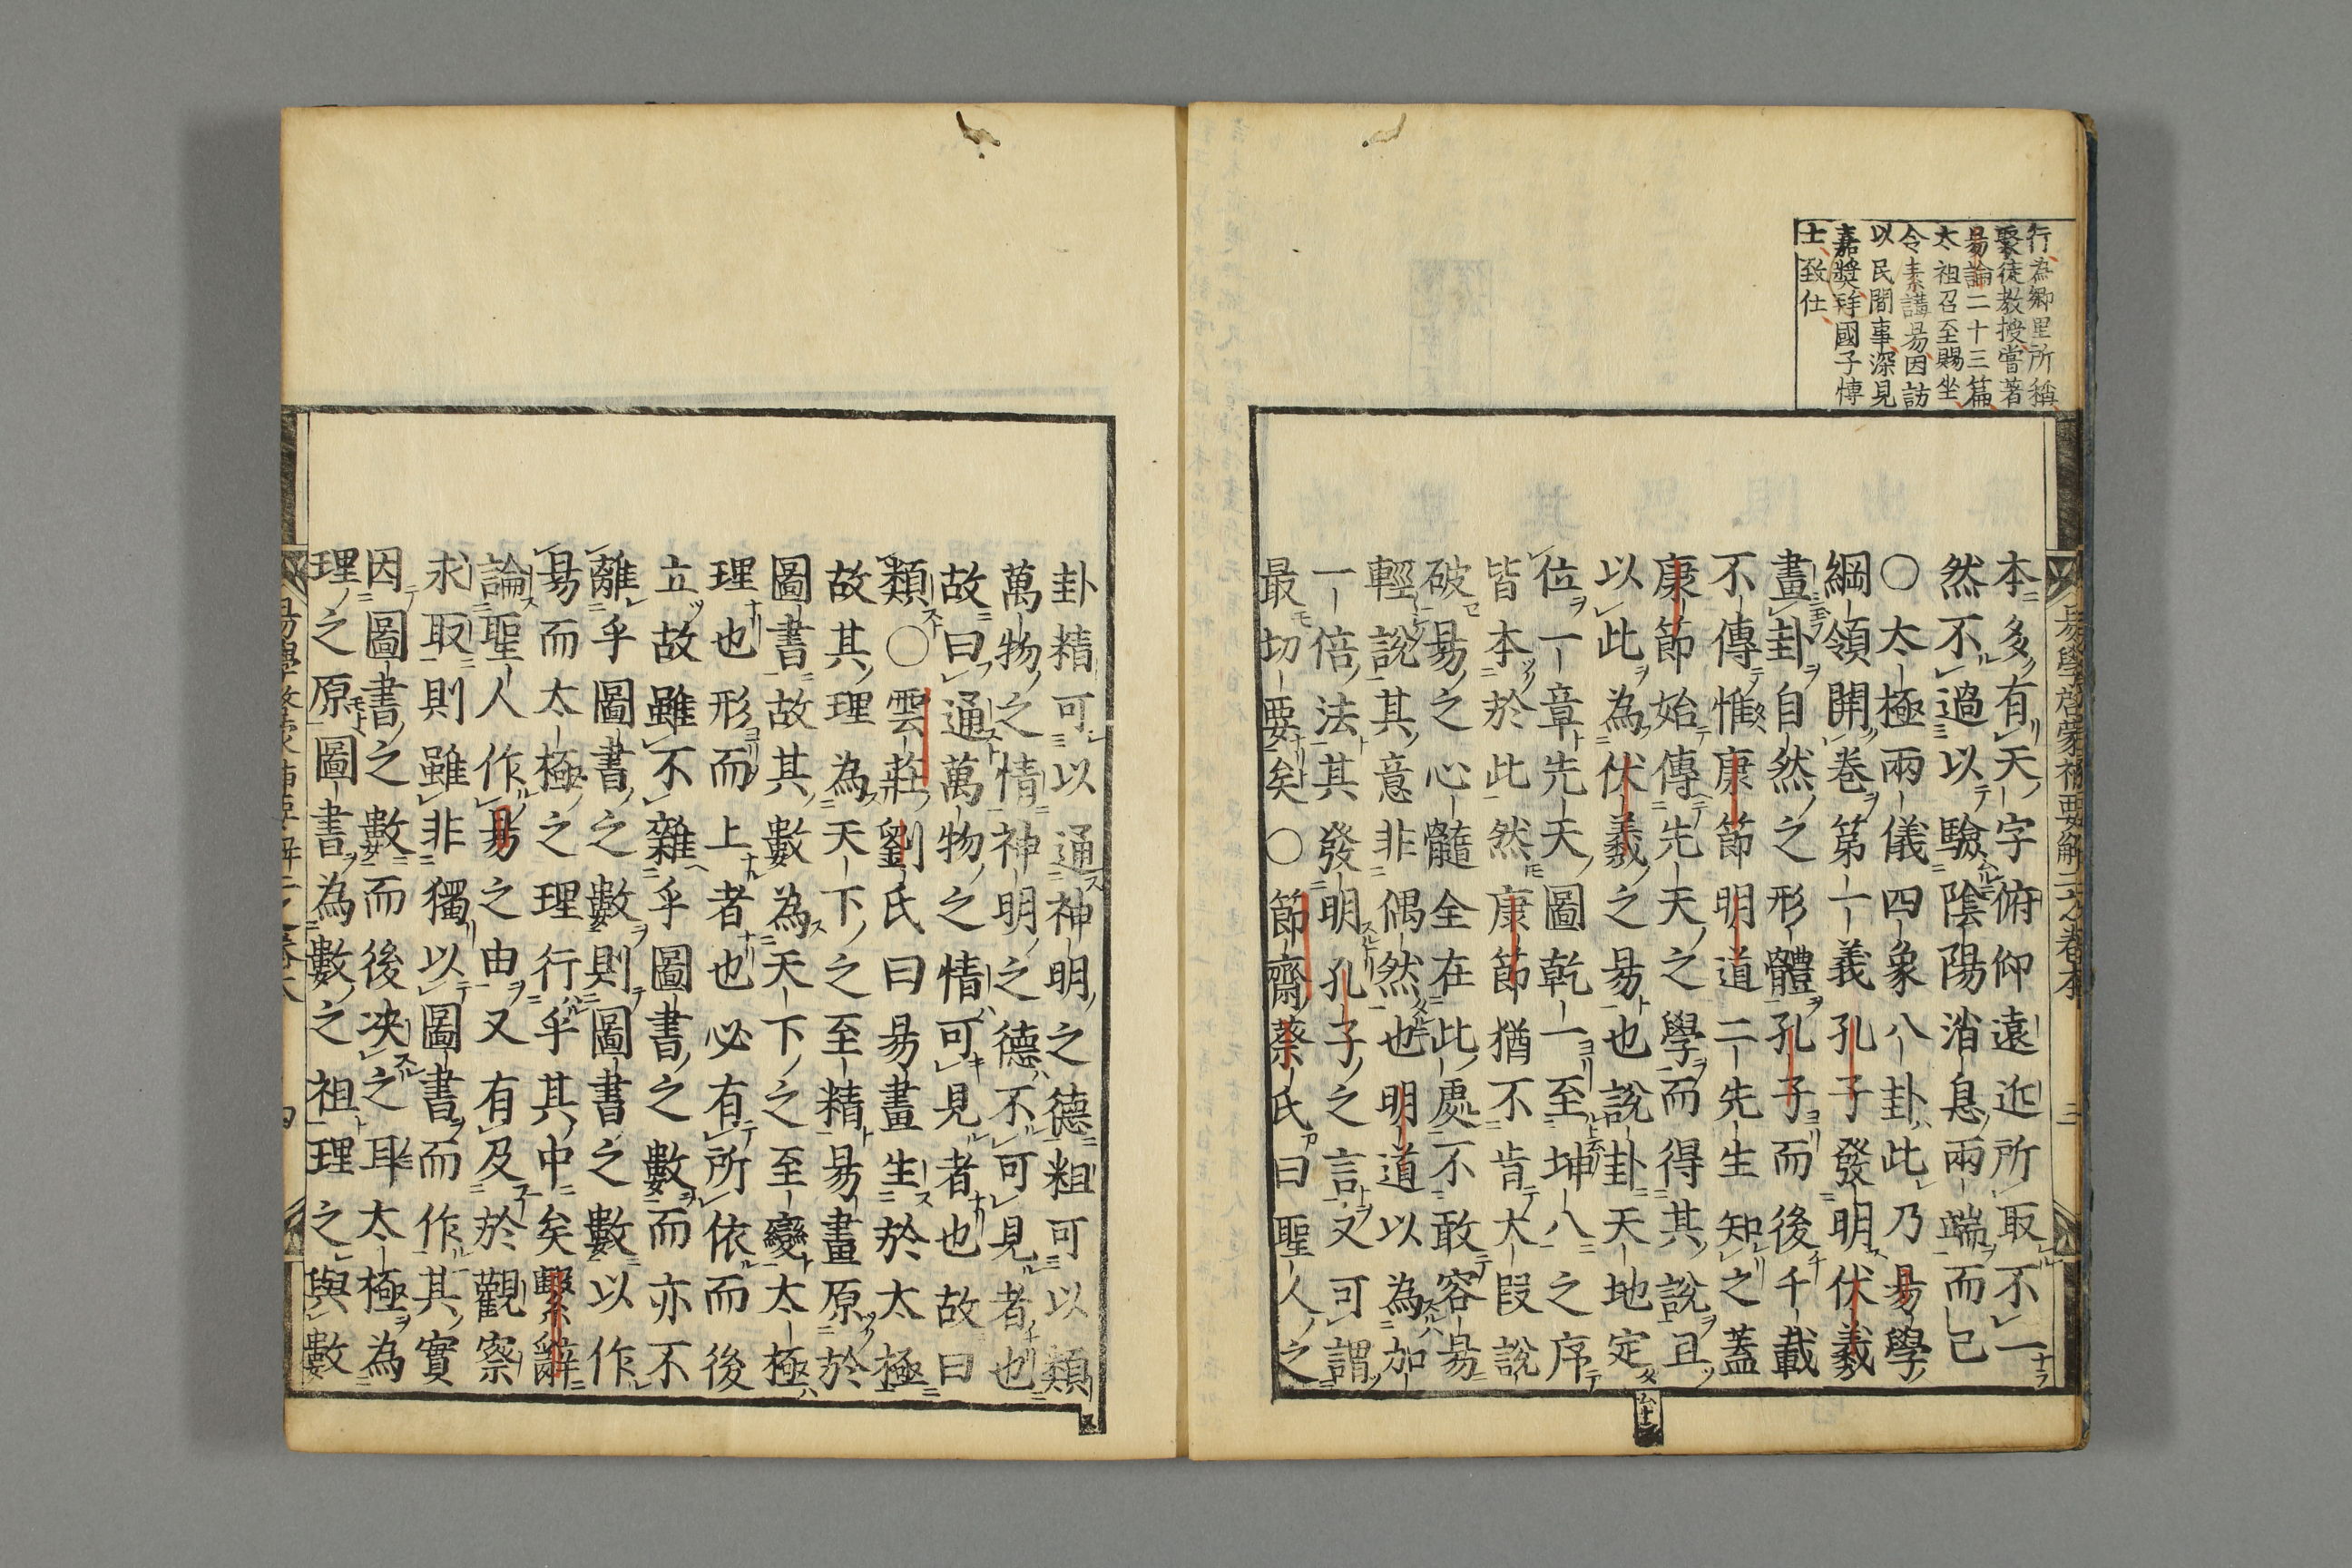 行為鄉里所稱
聚徒教授嘗著
易論二十三篇
太祖召至賜坐
令素講易因訪
以民間事深見
嘉奬拜國子愽
士致仕
本多有天字俯仰遠近所取不一
然不過以驗陰陽消息兩端而已
○太極兩儀四象八卦此乃易學
綱領開卷第一義孔子發明伏羲
畫卦自然之形體孔子而後千載
不傳惟康節明道二先生知之蓋
康節始傳先天之學而得其說且
以此為伏羲之易也說卦天地定
位一章先天圖乾一至坤八之序
皆本於此然康節猶不肯大叚說
破易之心髓全在此處不敢容易
輕說其意非偶然也明道以為加
一倍法其發明孔子之言又可謂
最切要矣○節齋蔡氏曰聖人之
卦精可以通神明之德粗可以類
萬物之情神明之德不可見者也
故曰通萬物之情可見者也故曰
類○雲莊劉氏曰易畫生於太極
故其理為天下之至精易畫原於
圖書故其數為天下之至變太極
理也形而上者也必有所依而後
立故雖不雜乎圖書之數而亦不
離乎圖書之數則圖書之數以作
易而太極之理行乎其中矣繫辭
論聖人作易之由又有及於觀察
求取則雖非獨以圖書而作其實
因圖書之數而後决之耳太極為
理之原圖書為數之祖理之與數